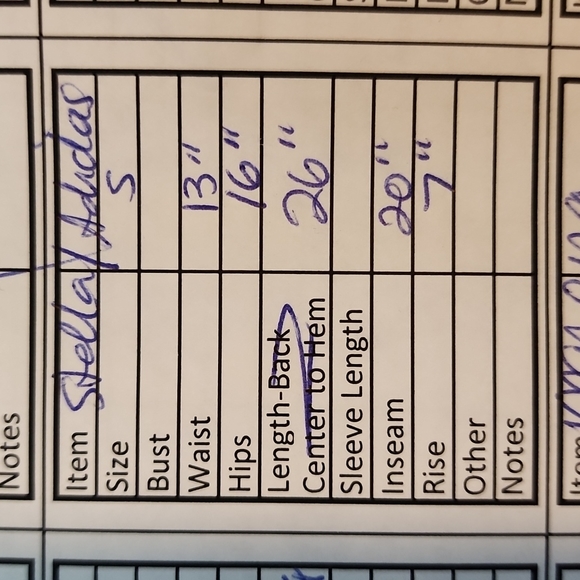 Notes
Item Stella/Adidas
Size S
Bust
Waist 13"
Hips 16"
Length-Back 26"
Center to Hem
Sleeve Length
Inseam 20"
Rise 7"
Other
Notes
Item